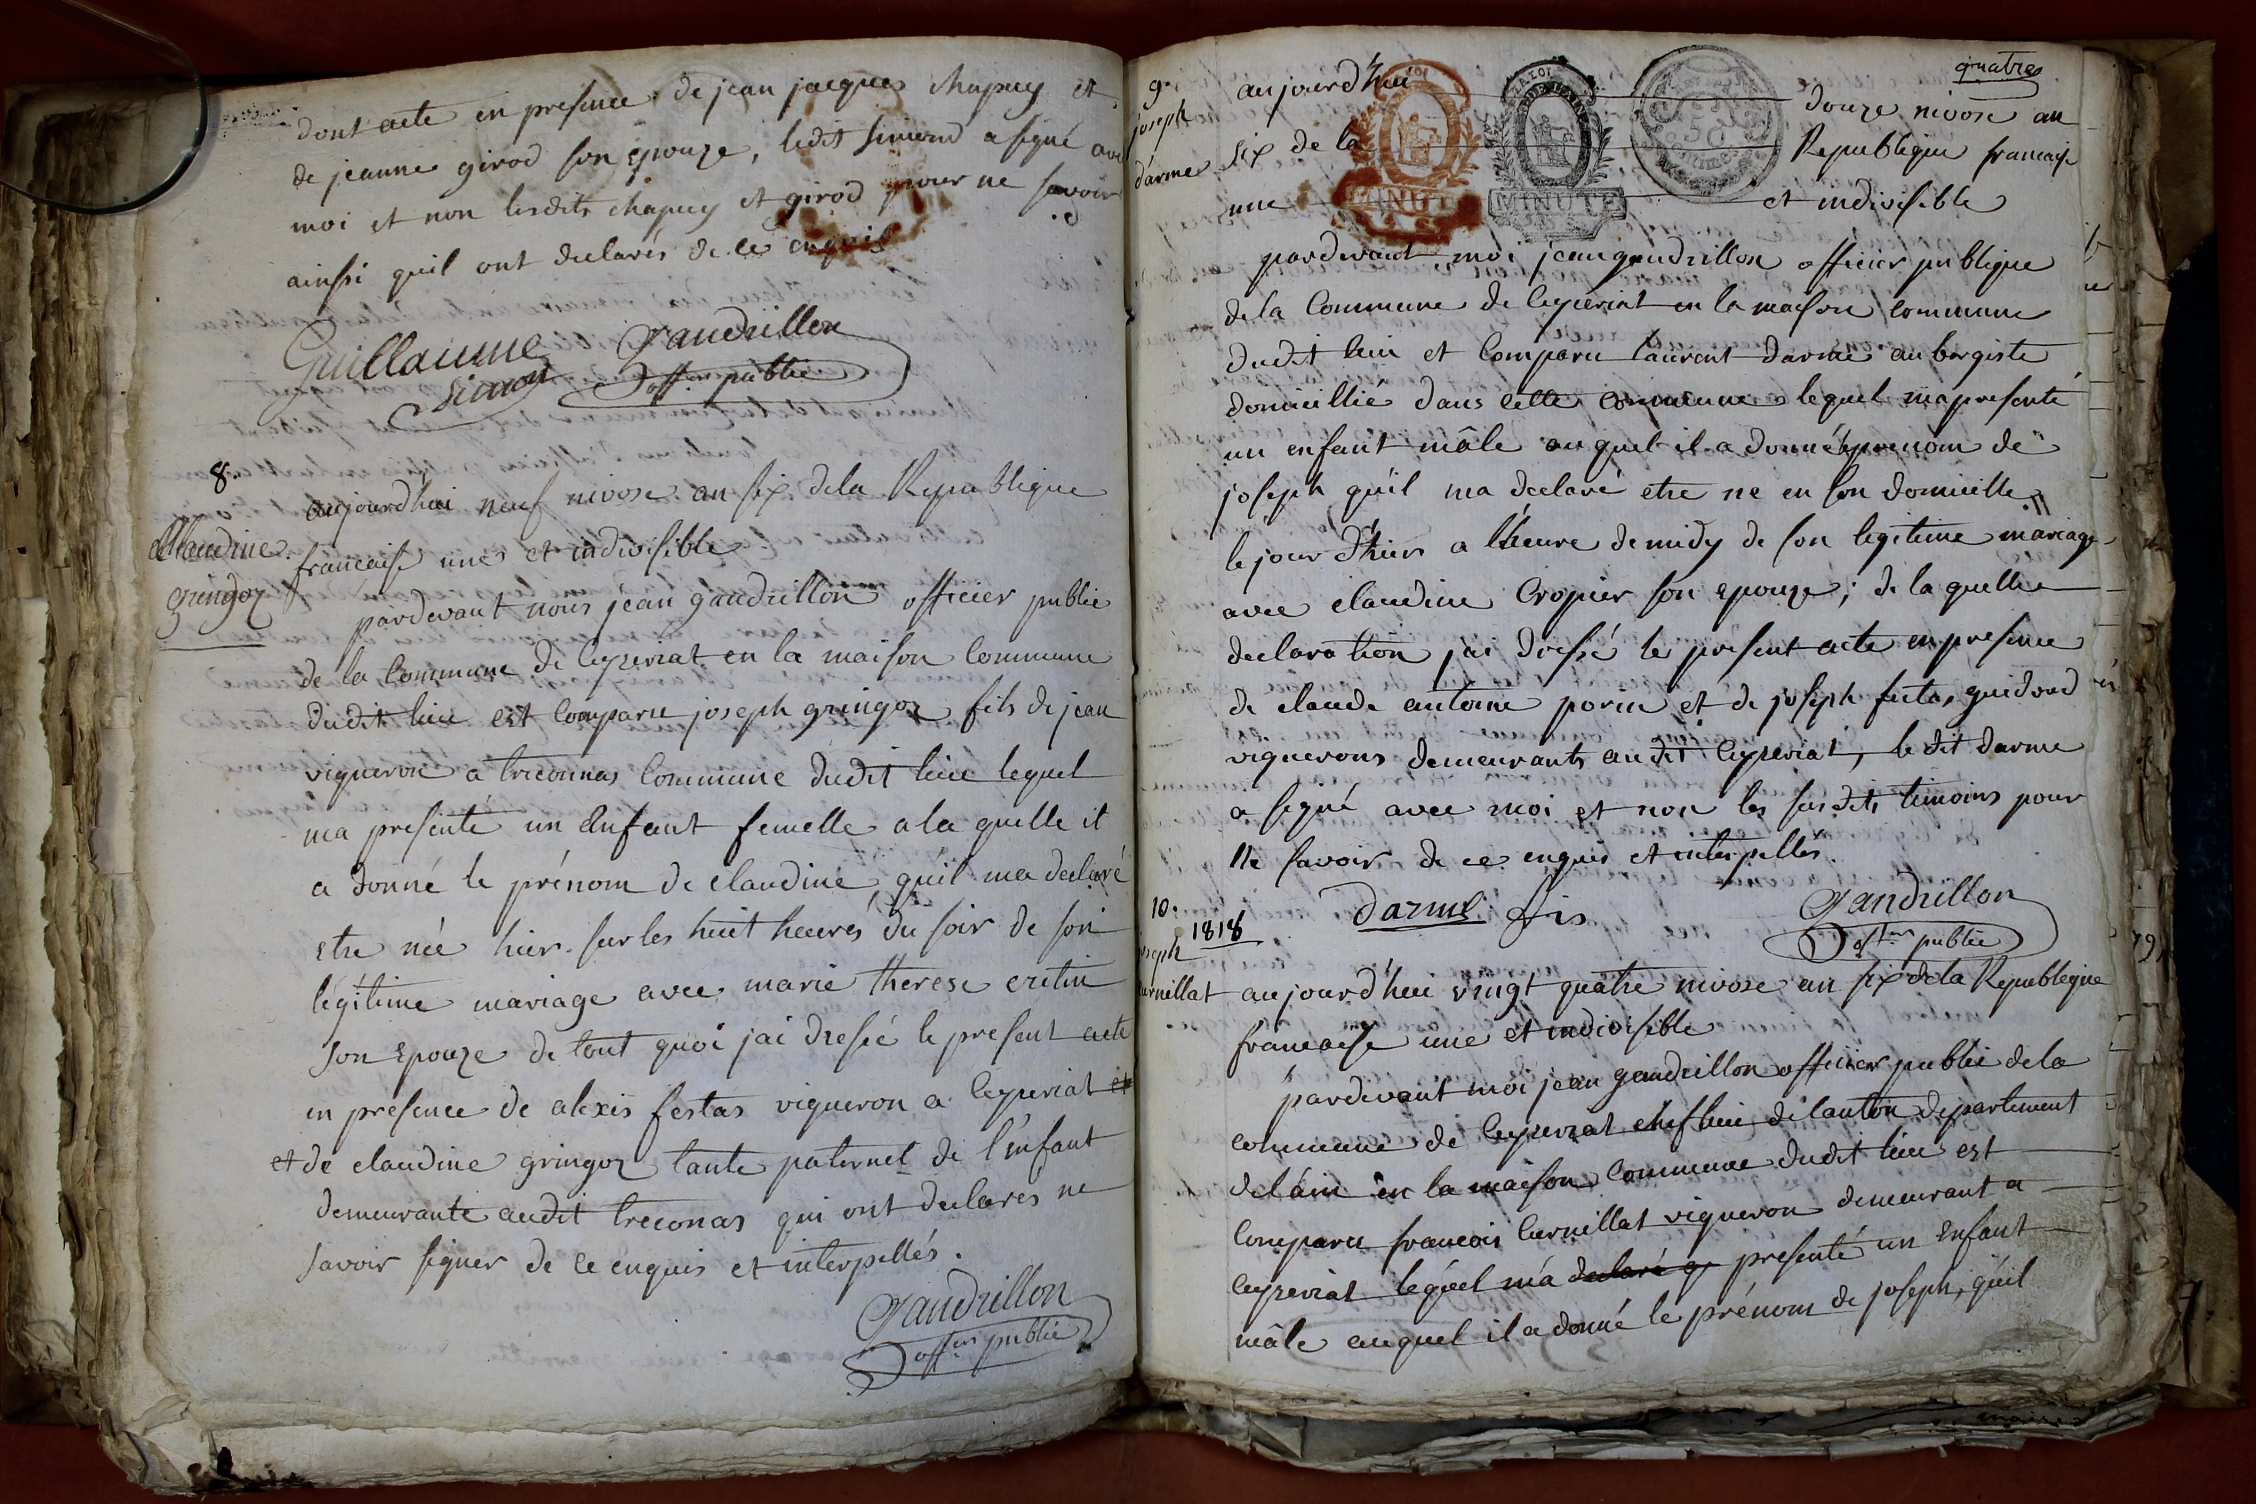 dont acte en presence de jean jacques chapuy et
de jeanne girod son epouze, ledit simond a signé avec
moi et non lesdits chapuy et girod pour ne savoir
ainsi quil ont declarés de ce enquis
Guillaume Gaudrillon
offer. public
8.
Claudine
gringoz
aujourd'hui neuf nivose an six dela Republique
francaise une et indivisible
pardevant nous jean gaudrillon officier public
de la Commune de Ceyzeriat en la maison Commune
dudit lieu est comparu joseph gringoz fils de jean
vigneron a treconnas Commune dudit lieu lequel
ma presenté un Enfant femelle a la quelle il
a donné le prénom de claudine, quil ma declaré
etre née hier sur les huit heures du soir de son
légitime mariage avec marie therese cretin
son epouze de tout quoi jai dressé le present acte
en presence de alexis festas vigneron a ceyzeriat et
et de claudine gringoz tante paternel de l'enfant
demeurante audit treconas qui ont declarés ne
savoir signer de ce enquis et interpellés.
Gaudrillon
offer. public
quatre
9.
joseph
darme
aujourd'hui douze nivose an
six de la Republique francaise
une et indivisible
A LOI
MINUTE
LA LOI
MINUTE
50
pardevant moi jean gaudrillon officier publique
de la Commune de Ceyzeriat en la maison commune
dudit lieu et Comparu laurent darme aubergiste
domicillié dans cette commune lequel ma presenté
un enfant mâle auquel il a donné le prenom de
joseph quil ma declaré etre ne en son domicille
le jour d'hier a l'heure de midy de son legitime mariage
avec claudine Cropier son epouze; de la quelle
declaration jai dressé le present acte en presence
de claude antoine porin et de joseph festas guidond
vignerons demeurants audit Ceyzeriat, le dit darme
a signé avec moi et non les susdits temoins pour
ne savoir de ce enquis et interpellés.
darme fis Gaudrillon
offer. public
10.
1818
joseph
Curnillat
aujourd'hui vingt quatre nivose an six dela Republique
francaise une et indivisible
pardevant moi jean gaudrillon officier public dela
commune de Ceyzeriat chef lieu de Canton departement
delain en la maison Commune dudit lieu est
Comparu francois Curnillat vigneron demeurant a
Ceyzeriat lequel m'a declaré q presenté un Enfant
mâle auquel il a donné le prénom de joseph, quil